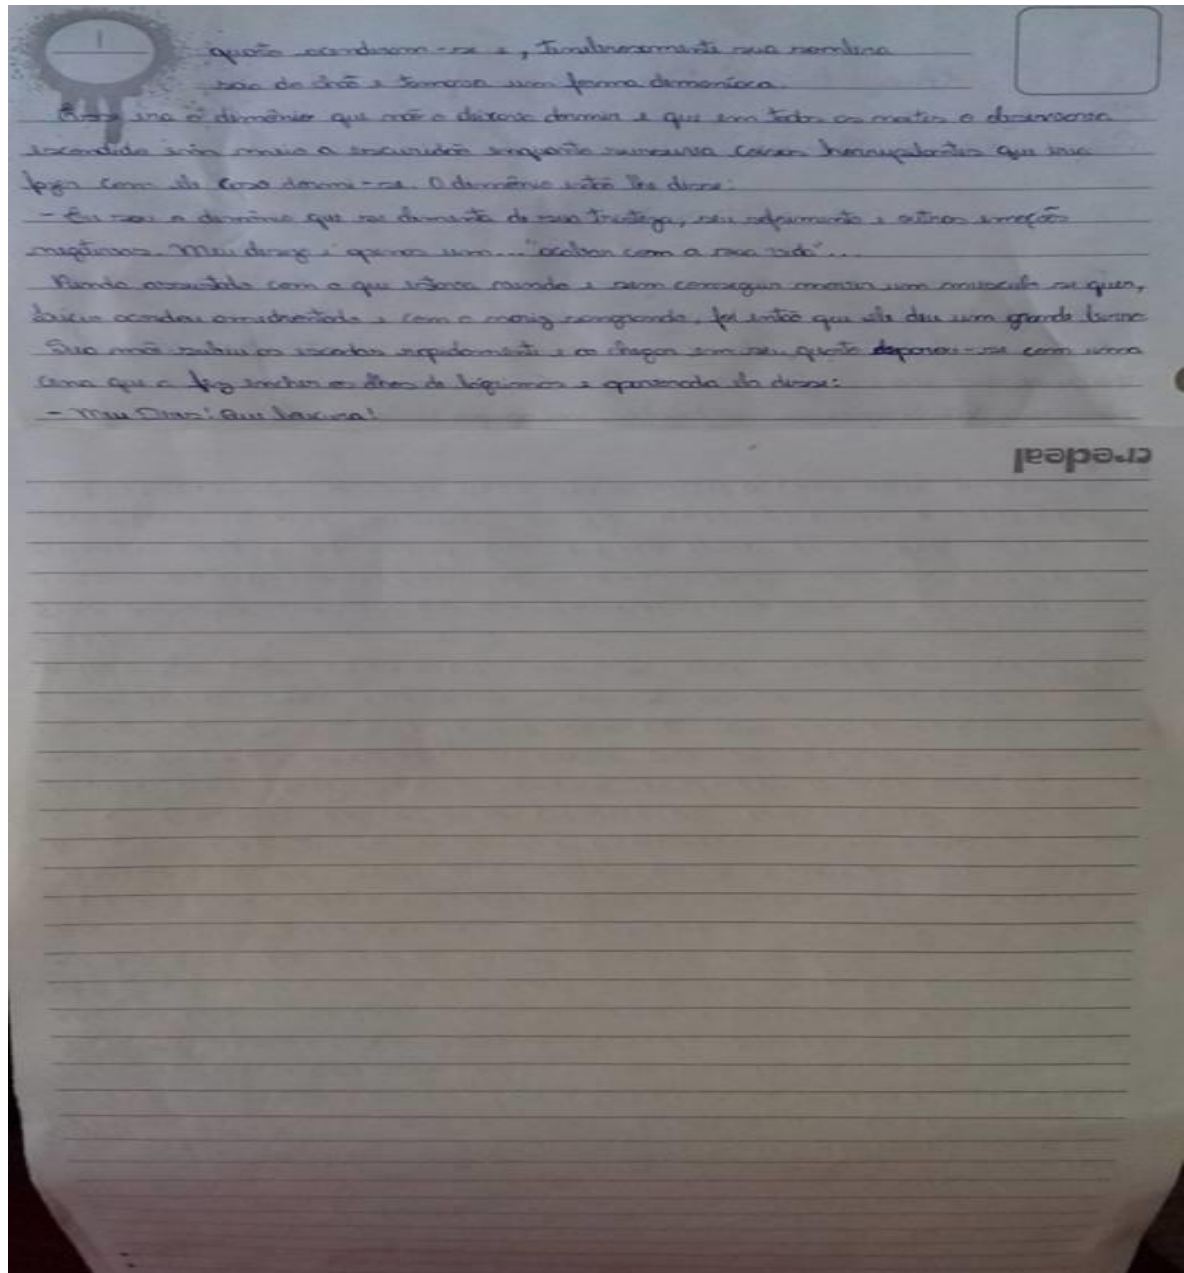 quarto acenderam-se e, tenebrosamente sua sombra
sao do chão e tomava um forma demoníaca.
era o demônio que não o deixava dormir e que em todas as noites o observava
escondido em meio a escuridão enquanto sussurrava coisas horripilantes que iria
fazer com ele caso dormi-se. O demônio então lhe disse:
- Eu sou o demônio que se alimenta de sua tristeza, seu sofrimento e outras emoções
negativas. Meu desejo é apenas um... "acabar com a sua vida"...
assustado com o que estava vendo e sem conseguir mover um musculo se quer,
acordou amedrontado e com o nariz sangrando, foi então que ele deu um grande berro
Sua mãe subiu as escadas rapidamente e ao chegar em seu quarto deparou-se com uma
cena que a fez encher os olhos de lágrimas e apavorada ela disse:
- Meu Deus! Que loucura!
credeal